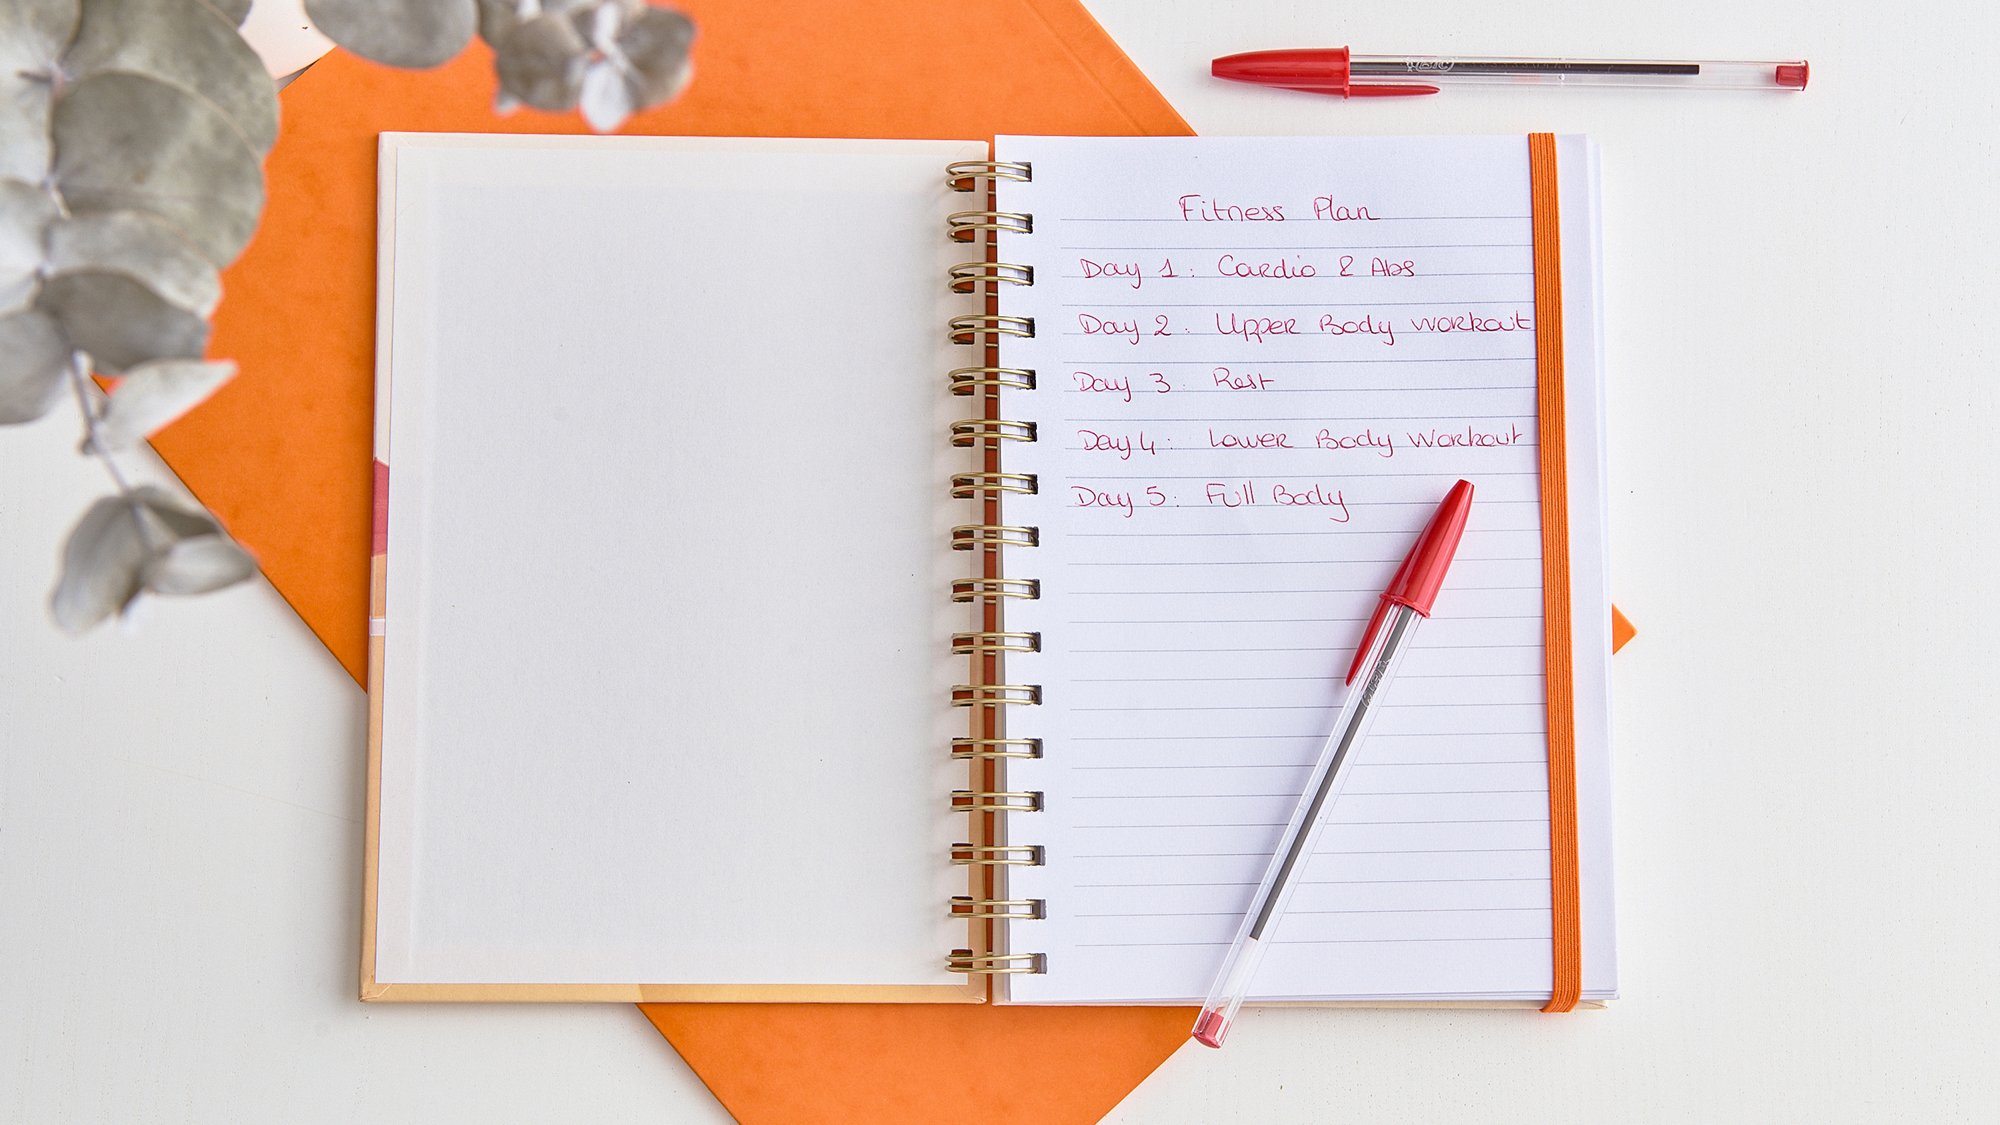 Fitness Plan
Day 1: Cardio & Abs
Day 2: Upper Body Workout
Day 3: Rest
Day 4: Lower Body Workout
Day 5: Full Body